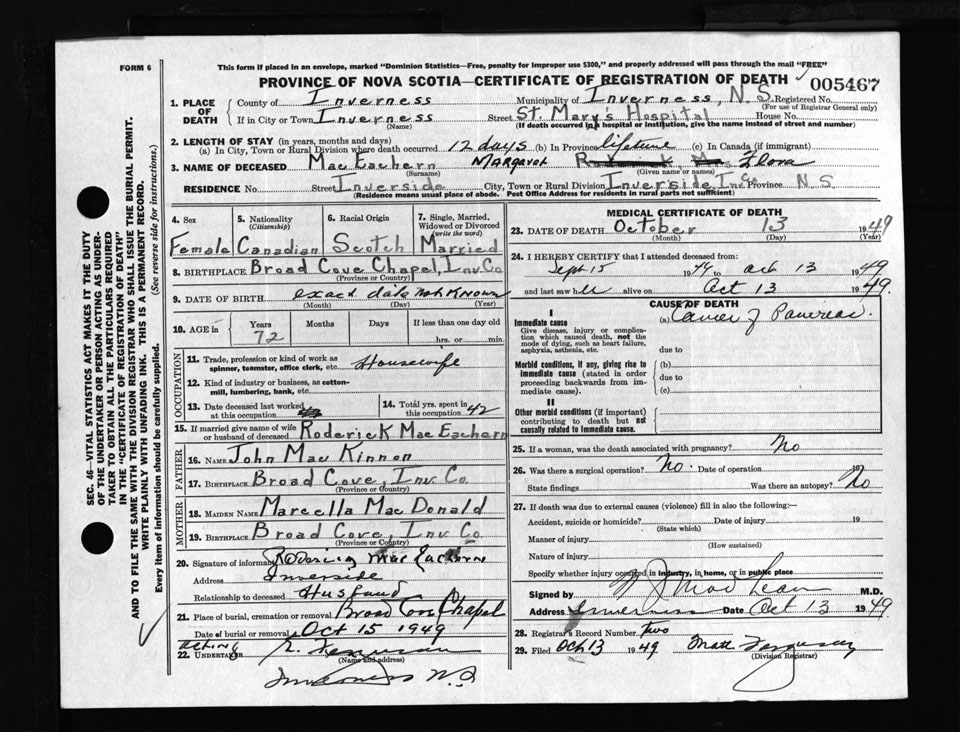 FORM 6
This form if placed in an envelope, marked "Dominion Statistics—Free, penalty for improper use $300," and properly addressed will pass through the mail "FREE"
PROVINCE OF NOVA SCOTIA—CERTIFICATE OF REGISTRATION OF DEATH
005467
1. PLACE OF DEATH
County of Inverness Municipality of Inverness, N.S. Registered No.
(For use of Registrar General only)
If in City or Town Inverness Street St. Mary's Hospital House No.
(Name) (If death occurred in hospital or institution, give the name instead of street and number)
2. LENGTH OF STAY (in years, months and days)
(a) In City, Town or Rural Division where death occurred 12 days (b) In Province lifetime (c) In Canada (if immigrant)
3. NAME OF DECEASED MacEachern Margaret Flora
(Surname) (Given name or names)
RESIDENCE No. Street Inverside City, Town or Rural Division Inverside, Inv. Co Province N.S.
(Residence means usual place of abode. Post Office Address for residents in rural parts not sufficient)
4. Sex
Female
5. Nationality
(Citizenship)
Canadian
6. Racial Origin
Scotch
7. Single, Married, Widowed or Divorced
(write the word)
Married
8. BIRTHPLACE Broad Cove Chapel, Inv. Co
(Province or Country)
9. DATE OF BIRTH exact date not known
(Month) (Day) (Year)
10. AGE in
Years Months Days If less than one day old
72 hrs. or min.
OCCUPATION
11. Trade, profession or kind of work as spinner, teamster, office clerk, etc. Housewife
12. Kind of industry or business, as cotton-mill, lumbering, bank, etc.
13. Date deceased last worked at this occupation
14. Total yrs. spent in this occupation 42
15. If married give name of wife or husband of deceased Roderick MacEachern
FATHER
16. NAME John MacKinnon
17. BIRTHPLACE Broad Cove, Inv. Co.
(Province or Country)
MOTHER
18. MAIDEN NAME Marcella MacDonald
19. BIRTHPLACE Broad Cove, Inv. Co.
(Province or Country)
20. Signature of informant MacEachern
Address Inverside
Relationship to deceased Husband
21. Place of burial, cremation or removal Broad Cove Chapel
Date of burial or removal Oct 15 1949
Acting
22. UNDERTAKER Ferguson
(Name and address)
Inverness N.S
MEDICAL CERTIFICATE OF DEATH
23. DATE OF DEATH October 13 1949
(Month) (Day) (Year)
24. I HEREBY CERTIFY that I attended deceased from:
Sept 15 to Oct 13 1949
and last saw her alive on Oct 13 1949.
CAUSE OF DEATH
I
Immediate cause (a) Cancer of Pancreas.
Give disease, injury or complication which caused death, not the mode of dying, such as heart failure, asphyxia, asthenia, etc.
due to
Morbid conditions, if any, giving rise to immediate cause (stated in order proceeding backwards from immediate cause).
(b)
due to
(c)
II
Other morbid conditions (if important) contributing to death but not causally related to immediate cause.
25. If a woman, was the death associated with pregnancy? No
26. Was there a surgical operation? No. Date of operation 19
State findings Was there an autopsy? No
27. If death was due to external causes (violence) fill in also the following:
Accident, suicide or homicide? Date of injury 19
(State which)
Manner of injury
(How sustained)
Nature of injury
Specify whether injury occurred in industry, in home, or in public place
Signed by MacLean M.D.
Address Inverness Date Oct 13 1949
28. Registrar's Record Number two
29. Filed Oct 13 1949 Ferguson
(Division Registrar)
SEC. 46—VITAL STATISTICS ACT MAKES IT THE DUTY
OF THE UNDERTAKER OR PERSON ACTING AS UNDER-
TAKER TO OBTAIN ALL THE PARTICULARS REQUIRED
IN THE "CERTIFICATE OF REGISTRATION OF DEATH"
AND TO FILE THE SAME WITH THE DIVISION REGISTRAR WHO SHALL ISSUE THE BURIAL PERMIT.
WRITE PLAINLY WITH UNFADING INK. THIS IS A PERMANENT RECORD.
Every item of information should be carefully supplied. (See reverse side for instructions.)